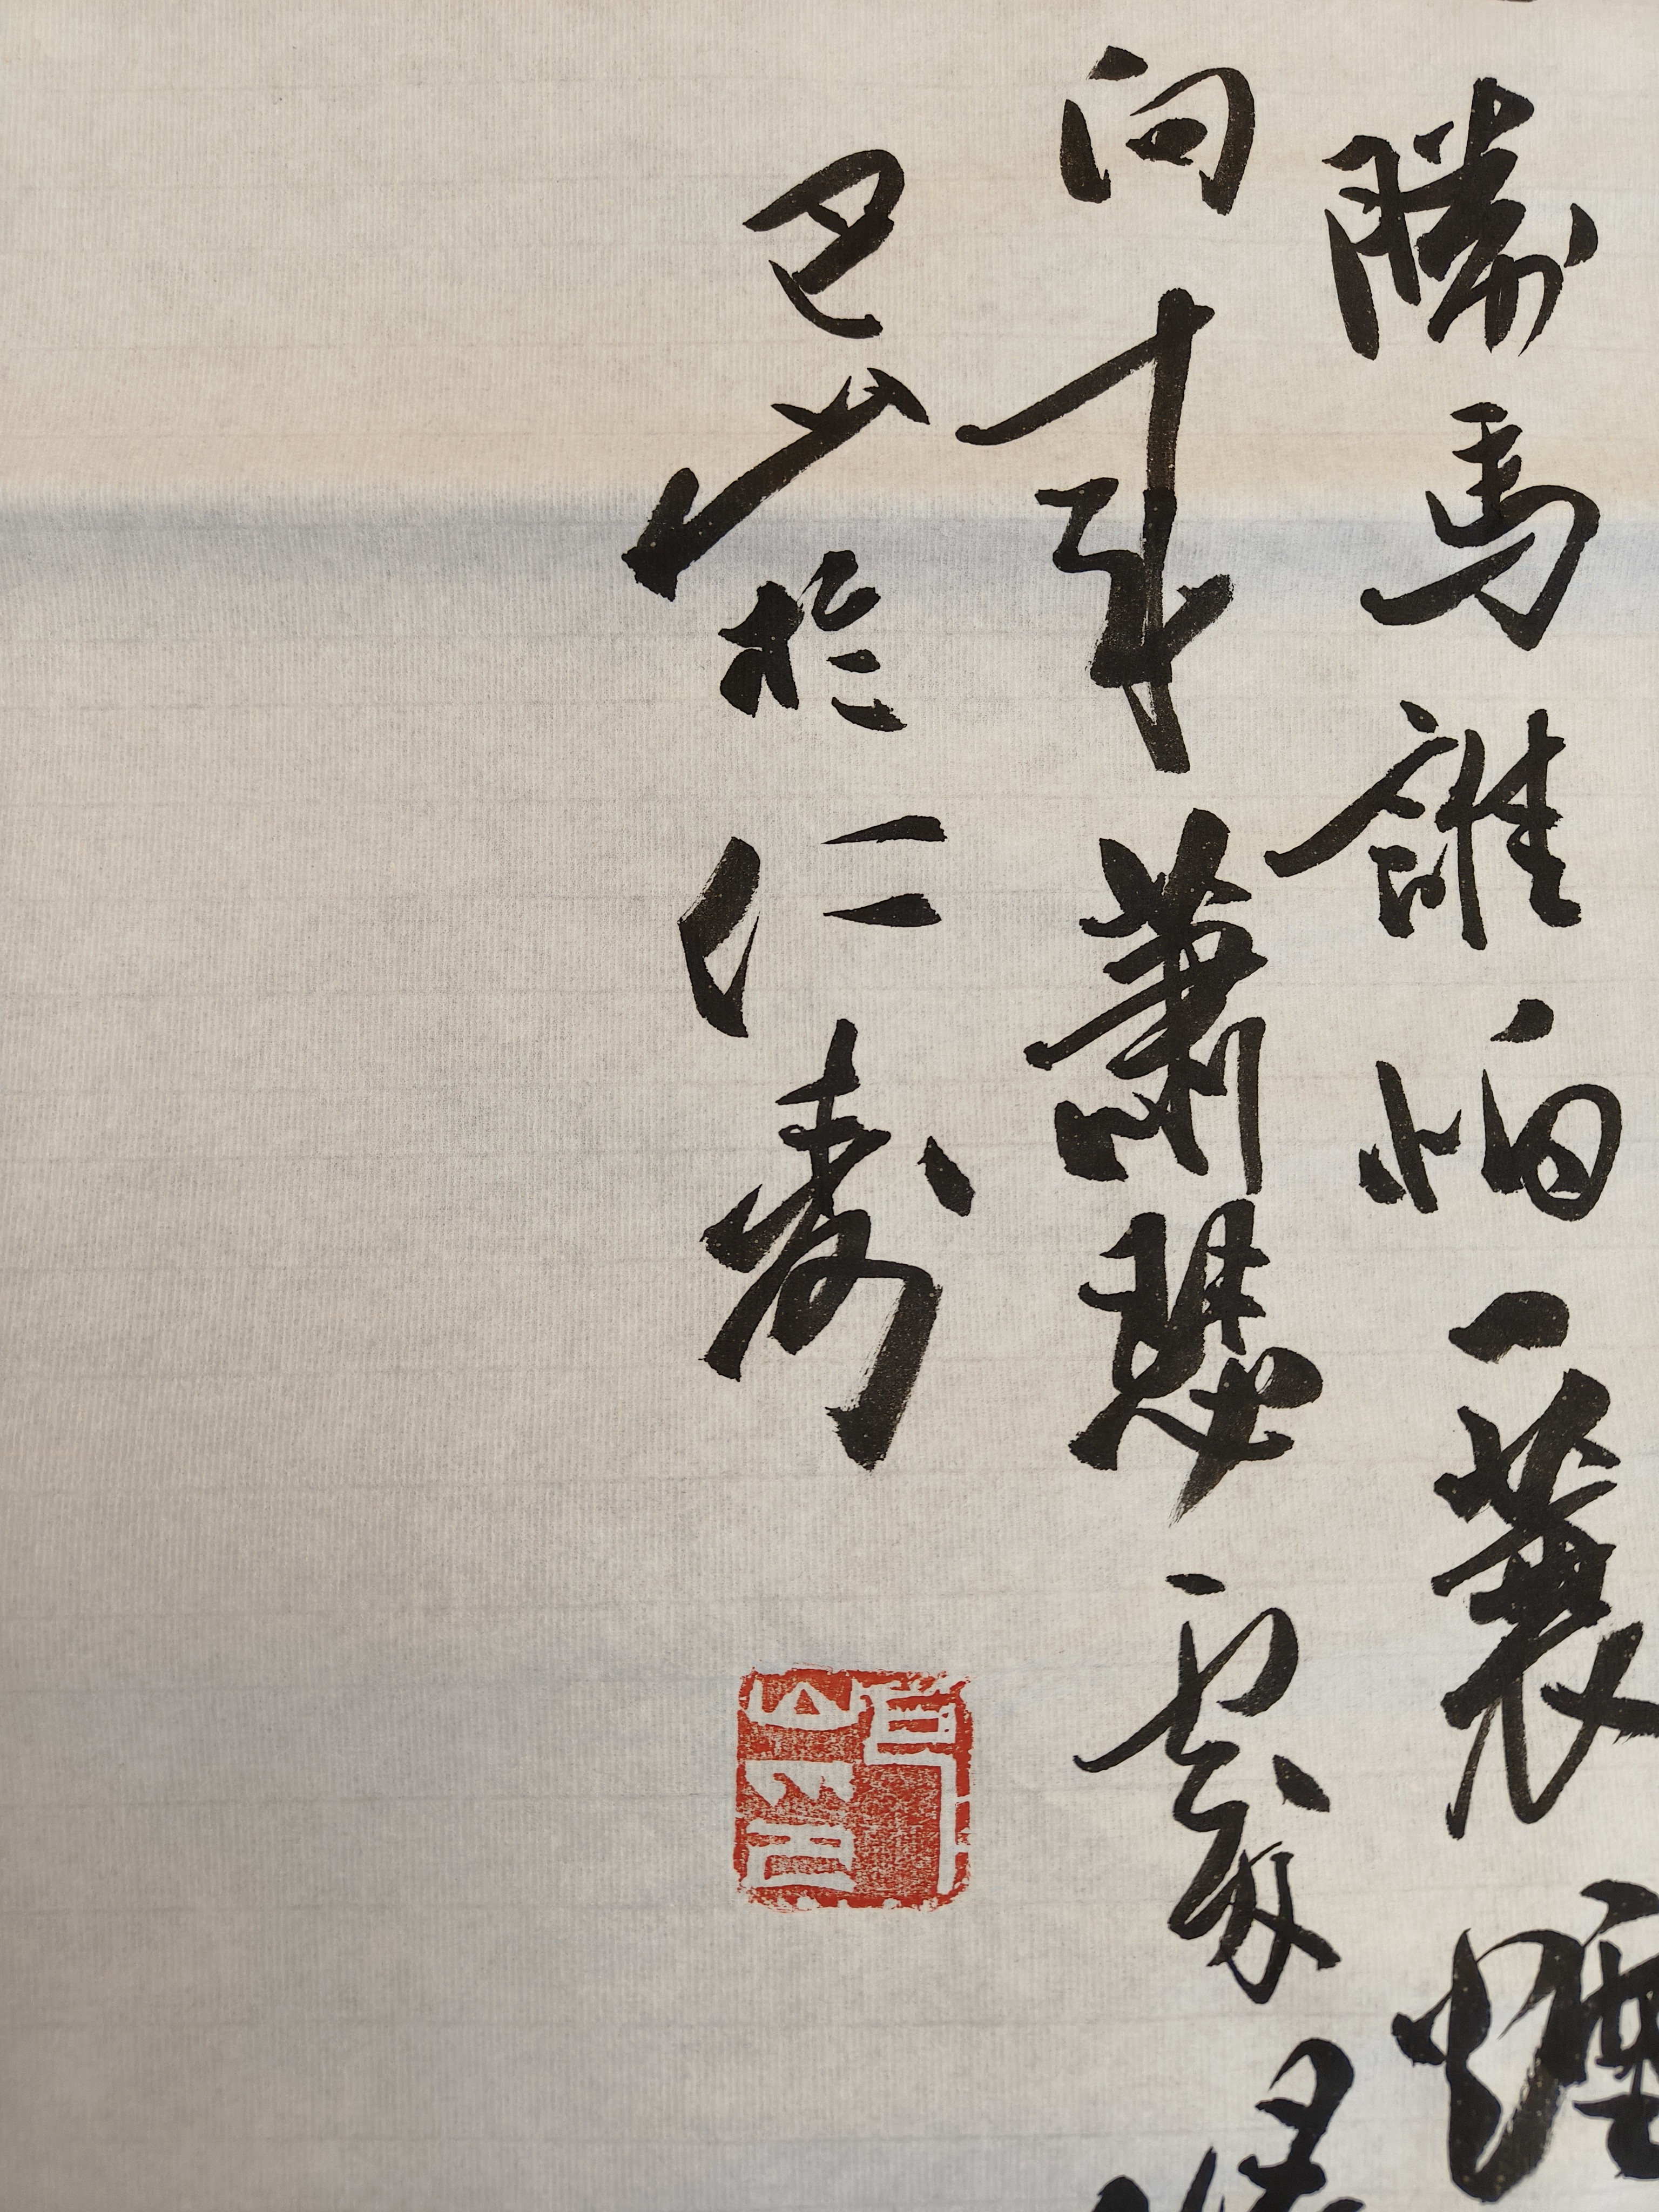 勝馬誰怕一蓑煙
向來蕭瑟處歸
巴山於仁壽